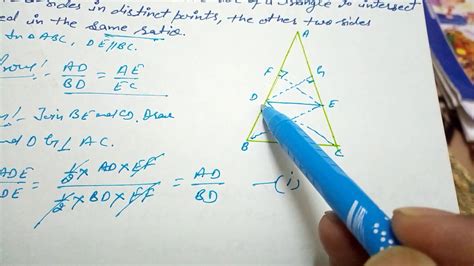 sides in distinct points, the other two sides
ed in the same ratio.
In △ABC, DE∥BC.
Prove:- AD/BD = AE/EC
Join BE and CD, Draw
D ⊥ AC.
ADE/DE = ½ × AD × EF / ½ × BD × EF = AD/BD —(i)
A
F G
D E
B C